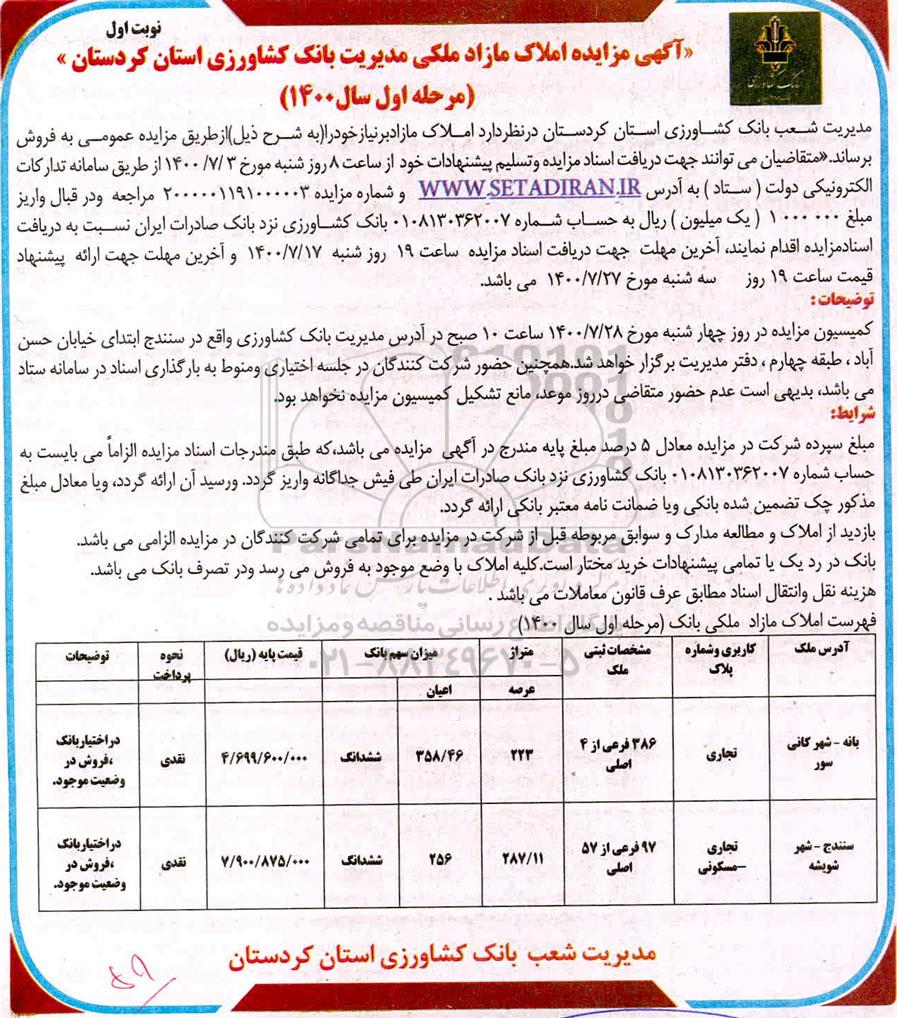 نوبت اول
«آگهی مزایده املاک مازاد ملکی مدیریت بانک کشاورزی استان کردستان»
(مرحله اول سال ۱۴۰۰)
مدیریت شعب بانک کشاورزی استان کردستان درنظردارد املاک مازادبرنیازخودرا(به شرح ذیل)ازطریق مزایده عمومی به فروش
برساند.«متقاضیان می توانند جهت دریافت اسناد مزایده وتسلیم پیشنهادات خود از ساعت ۸ روز شنبه مورخ ۱۴۰۰/۷/۳ از طریق سامانه تدارکات
الکترونیکی دولت ( ستاد ) به آدرس WWW.SETADIRAN.IR و شماره مزایده ۲۰۰۰۰۰۱۱۹۱۰۰۰۰۰۳ مراجعه ودر قبال واریز
مبلغ ۱۰۰۰۰۰۰ ( یک میلیون ) ریال به حساب شماره ۰۱۰۸۱۳۰۳۶۲۰۰۷ بانک کشاورزی نزد بانک صادرات ایران نسبت به دریافت
اسنادمزایده اقدام نمایند، آخرین مهلت جهت دریافت اسناد مزایده ساعت ۱۹ روز شنبه ۱۴۰۰/۷/۱۷ و آخرین مهلت جهت ارائه پیشنهاد
قیمت ساعت ۱۹ روز سه شنبه مورخ ۱۴۰۰/۷/۲۷ می باشد.
توضیحات:
کمیسیون مزایده در روز چهار شنبه مورخ ۱۴۰۰/۷/۲۸ ساعت ۱۰ صبح در آدرس مدیریت بانک کشاورزی واقع در سنندج ابتدای خیابان حسن
آباد ، طبقه چهارم ، دفتر مدیریت برگزار خواهد شد.همچنین حضور شرکت کنندگان در جلسه اختیاری ومنوط به بارگذاری اسناد در سامانه ستاد
می باشد، بدیهی است عدم حضور متقاضی درروز موعد، مانع تشکیل کمیسیون مزایده نخواهد بود.
شرایط:
مبلغ سپرده شرکت در مزایده معادل ۵ درصد مبلغ پایه مندرج در آگهی مزایده می باشد،که طبق مندرجات اسناد مزایده الزاماً می بایست به
حساب شماره ۰۱۰۸۱۳۰۳۶۲۰۰۷ بانک کشاورزی نزد بانک صادرات ایران طی فیش جداگانه واریز گردد. ورسید آن ارائه گردد، ویا معادل مبلغ
مذکور چک تضمین شده بانکی ویا ضمانت نامه معتبر بانکی ارائه گردد.
بازدید از املاک و مطالعه مدارک و سوابق مربوطه قبل از شرکت در مزایده برای تمامی شرکت کنندگان در مزایده الزامی می باشد.
بانک در رد یک یا تمامی پیشنهادات خرید مختار است.کلیه املاک با وضع موجود به فروش می رسد ودر تصرف بانک می باشد.
هزینه نقل وانتقال اسناد مطابق عرف قانون معاملات می باشد .
فهرست املاک مازاد ملکی بانک (مرحله اول سال ۱۴۰۰)
ParsNamadData
۰۲۱-۸۸۳۴۹۶۷۰-۵
آدرس ملک کاربری وشماره پلاک مشخصات ثبتی ملک متراژ میزان سهم بانک قیمت پایه (ریال) نحوه پرداخت توضیحات
عرصه اعیان
بانه - شهر کانی سور تجاری ۳۸۶ فرعی از ۴ اصلی ۲۲۳ ۳۵۸/۴۶ ششدانگ ۴/۶۹۹/۶۰۰/۰۰۰ نقدی دراختیاربانک ،فروش در وضعیت موجود.
سنندج - شهر شویشه تجاری -مسکونی ۹۷ فرعی از ۵۷ اصلی ۲۸۷/۱۱ ۲۵۶ ششدانگ ۷/۹۰۰/۸۷۵/۰۰۰ نقدی دراختیاربانک ،فروش در وضعیت موجود.
مدیریت شعب بانک کشاورزی استان کردستان